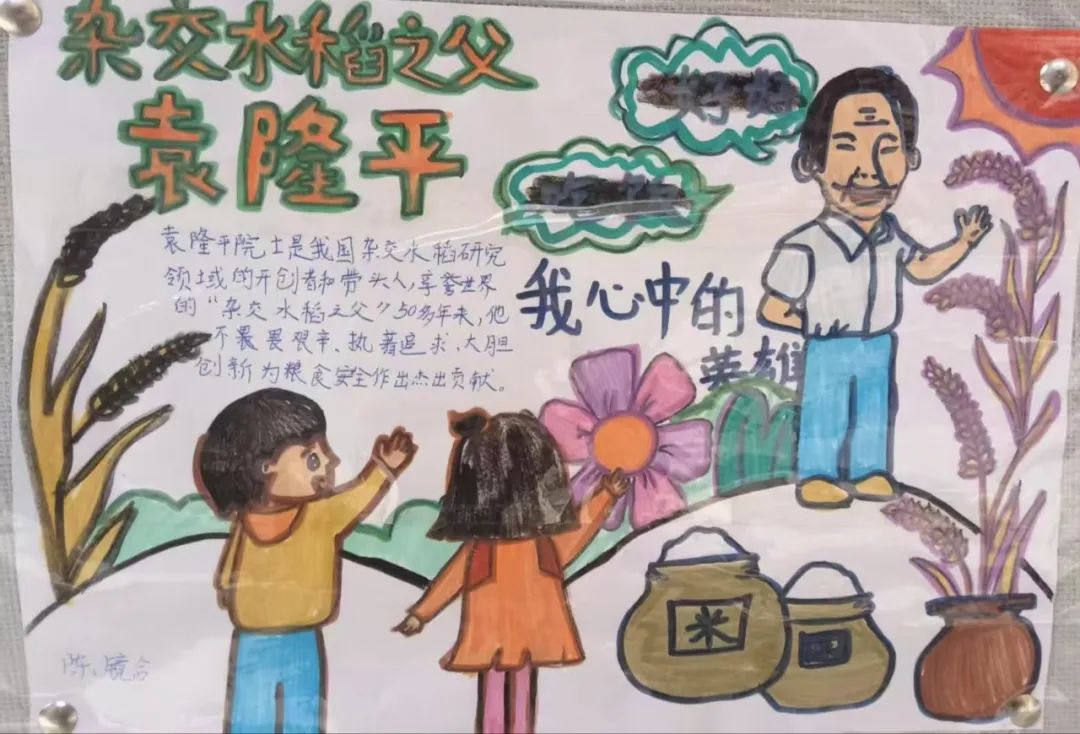 杂交水稻之父
袁隆平
袁隆平院士是我国杂交水稻研究
领域的开创者和带头人,享誉世界
的“杂交水稻之父”50多年来,他
不畏艰辛、执著追求、大胆
创新为粮食安全作出杰出贡献。
好好
吃
我心中的
英雄
米
陈